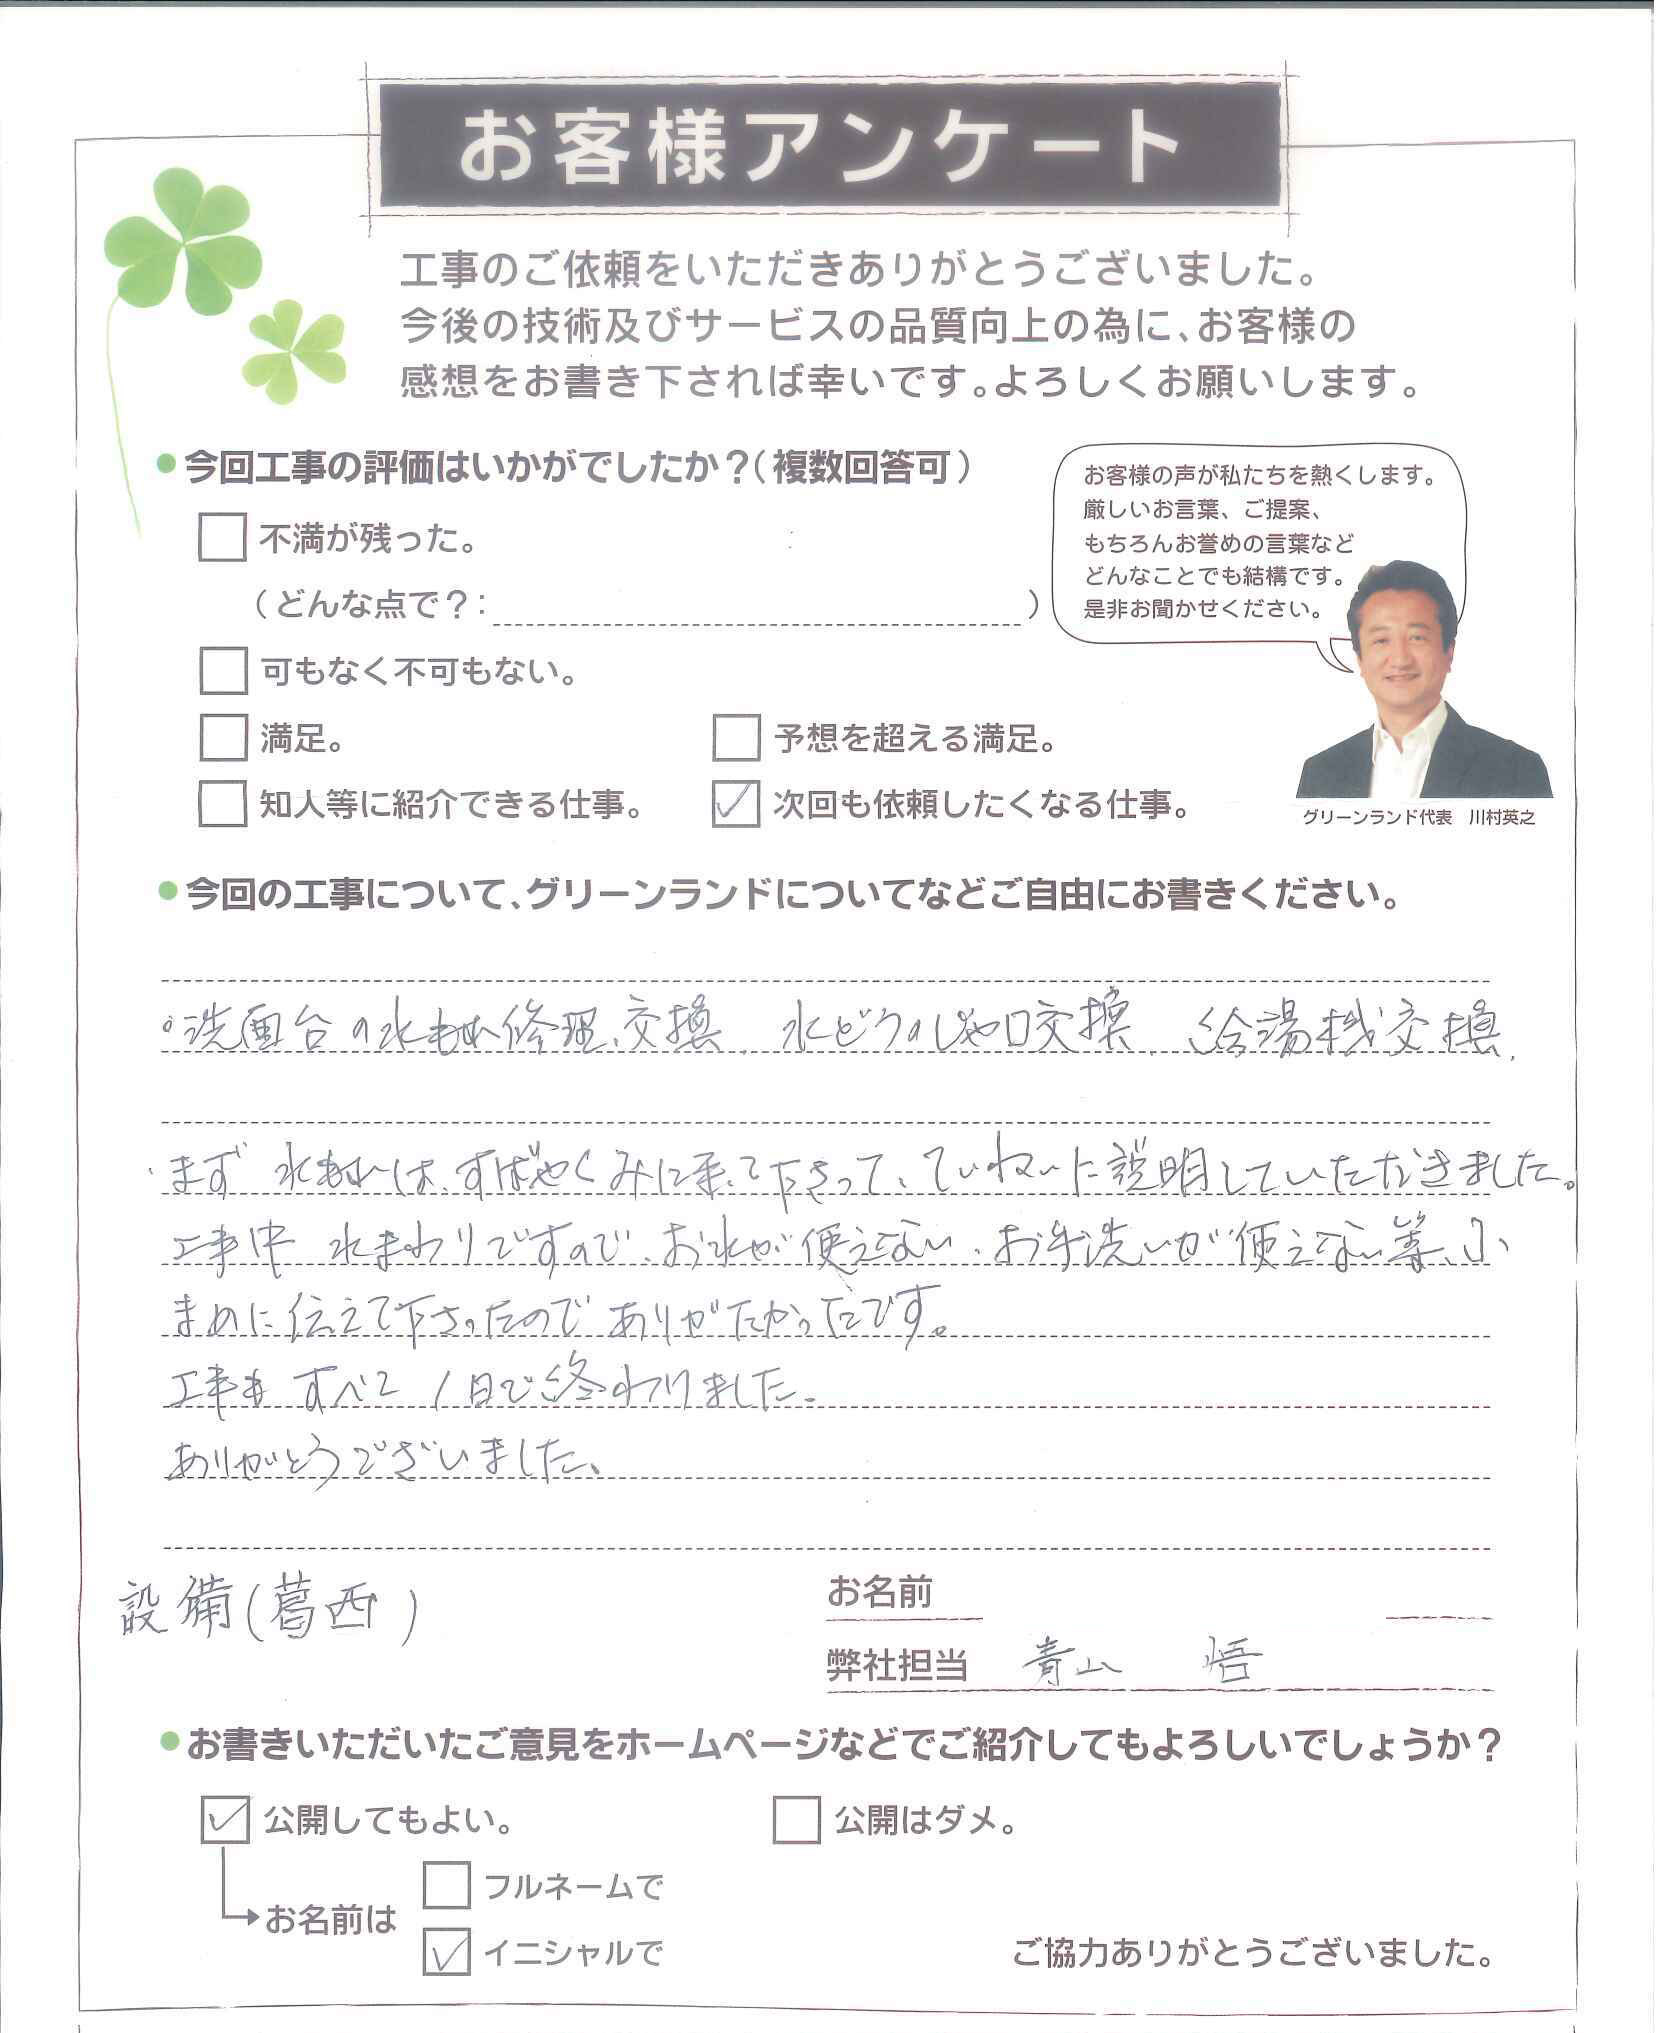 お客様アンケート
工事のご依頼をいただきありがとうございました。
今後の技術及びサービスの品質向上の為に、お客様の
感想をお書き下されば幸いです。よろしくお願いします。
今回工事の評価はいかがでしたか？（複数回答可）
不満が残った。
（どんな点で？：　）
可もなく不可もない。
満足。
予想を超える満足。
知人等に紹介できる仕事。
次回も依頼したくなる仕事。
お客様の声が私たちを熱くします。
厳しいお言葉、ご提案、
もちろんお誉めの言葉など
どんなことでも結構です。
是非お聞かせください。
グリーンランド代表　川村英之
今回の工事について、グリーンランドについてなどご自由にお書きください。
。洗面台の水もれ修理、交換、水どうのじゃ口交換、給湯機交換、
・まず 水もれは、すばやくみに来て下さって、ていねいに説明していただきました。
工事中 水まわりですので、お水が使えない、お手洗いが使えない等、小
まめに伝えて下さったのでありがたかったです。
工事も すべて 1日で終わりました。
ありがとうございました。
設備(葛西)
お名前
弊社担当　青山　悟
お書きいただいたご意見をホームページなどでご紹介してもよろしいでしょうか？
公開してもよい。
公開はダメ。
お名前は
フルネームで
イニシャルで
ご協力ありがとうございました。